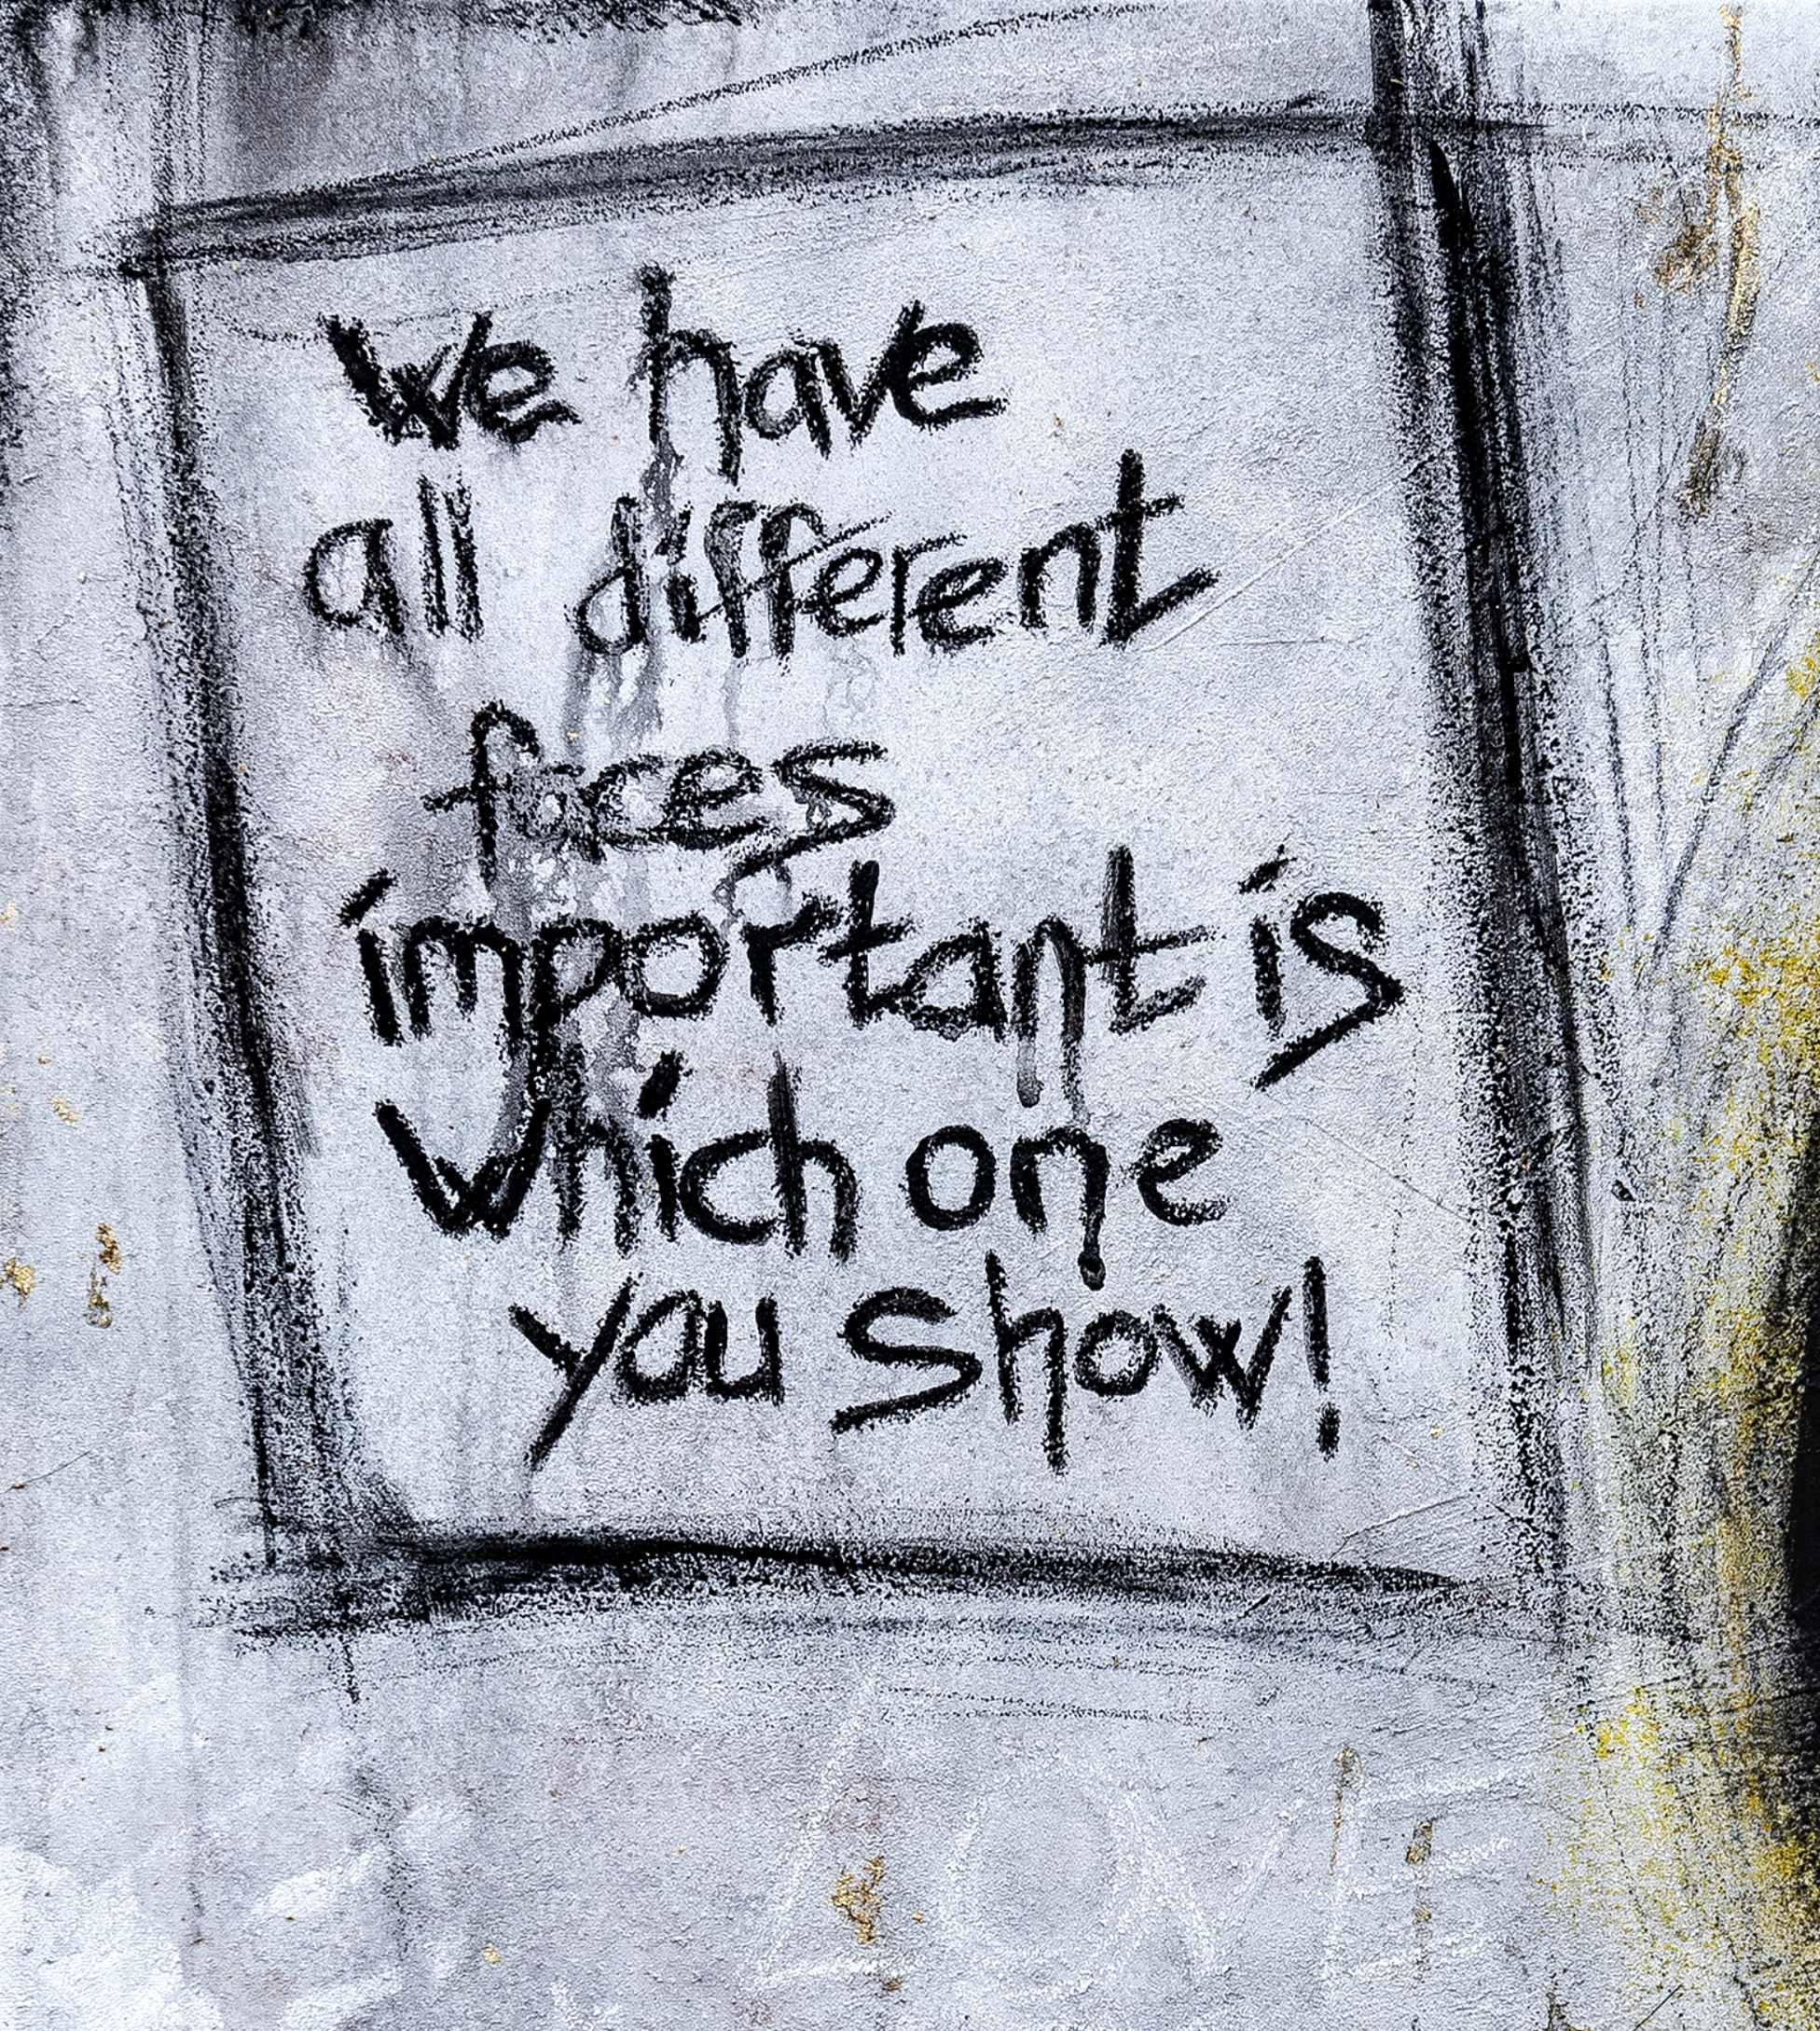 We have
all different
faces
important is
which one
you show!
LOVE